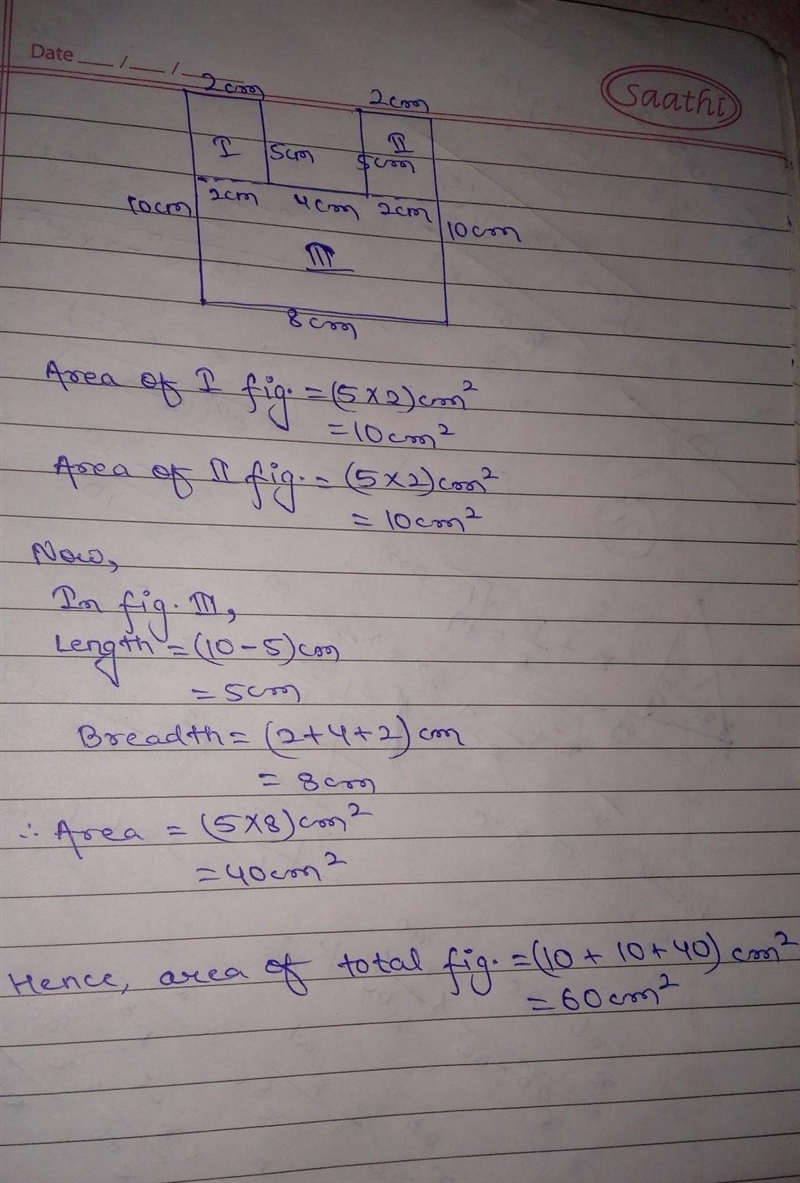 Date __/__/__
Saathi
2cm
2cm
I
5cm
5cm
II
10cm
2cm
4cm
2cm
10cm
III
8cm
Area of I fig. = (5×2)cm²
= 10cm²
Area of II fig. = (5×2)cm²
= 10cm²
Now,
In fig. III,
Length = (10-5)cm
= 5cm
Breadth = (2+4+2) cm
= 8cm
∴ Area = (5×8)cm²
= 40cm²
Hence, area of total fig. = (10 + 10+40) cm²
= 60cm²